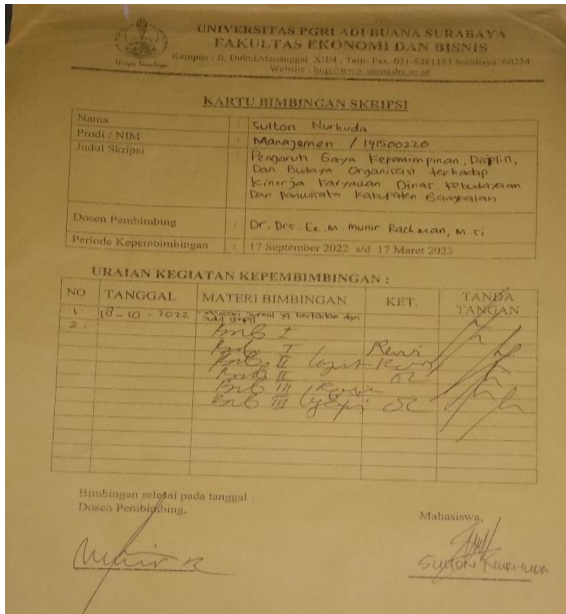 UNIVERSITAS PGRI ADI BUANA SURABAYA
FAKULTAS EKONOMI DAN BISNIS
Kampus : Jl. Dukuh Menanggal XII/4 , Telp-Fax. 031-8281183 Surabaya 60234
Website :
KARTU BIMBINGAN SKRIPSI
Nama : Sulton Nurhuda
Prodi / NIM : Manajemen / 141500220
Judul Skripsi : Pengaruh Gaya Kepemimpinan, Disiplin,
Dan Budaya Organisasi terhadap
Kinerja Karyawan Dinas Kebudayaan
Dan Pariwisata Kabupaten Bangkalan
Dosen Pembimbing : Dr. Drs. Ec. M. Munir Rachman, M.si
Periode Kepembimbingan : 17 September 2022 s/d 17 Maret 2023
URAIAN KEGIATAN KEPEMBIMBINGAN :
NO TANGGAL MATERI BIMBINGAN KET. TANDA TANGAN
1 18-10-2022 Mencari Jurnal yg berkaitan dgn
Judul skripsi
2. Bab I
Bab I Revisi
Bab II
Bab II OK
Bab III Revisi
Bab III OK
Bimbingan selesai pada tanggal :
Dosen Pembimbing,
Mahasiswa,
Sulton Nurhuda